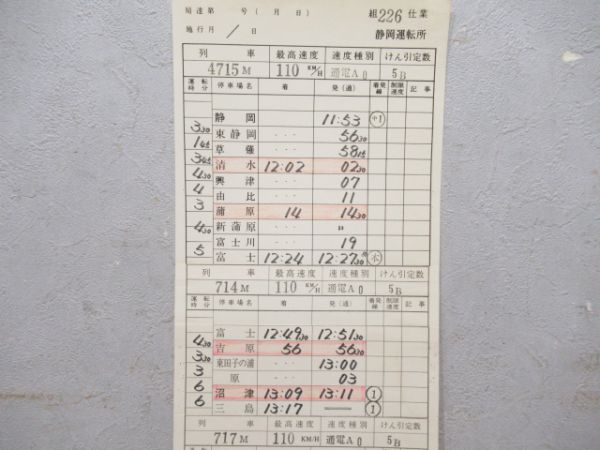 局達第 号 ( 月 日 ) 組 226 仕業
施行 月 / 日 静岡運転所
列車 最高速度 速度種別 けん引定数
4715M 110 KM/H 通電A0 5B
運転時分 停車場名 着 発(通) 着発線 制限速度 記事
静岡 11:53
3 30 東静岡 ・・・ 56 30
1 45 草薙 ・・・ 58 15
3 45 清水 12:02 02 30
4 30 興津 ・・・ 07
4 由比 ・・・ 11
3 蒲原 14 14 30
新蒲原 ・・・ 〃
4 30 富士川 ・・・ 19
5 富士 12:24 12:27 30
列車 最高速度 速度種別 けん引定数
714M 110 KM/H 通電A0 5B
運転時分 停車場名 着 発(通) 着発線 制限速度 記事
富士 12:49 30 12:51 30
4 30 吉原 56 56 30
3 30 東田子の浦 ・・・ 13:00
3 原 ・・・ 03
6 沼津 13:09 13:11 ①
6 三島 13:17 ― ①
列車 最高速度 速度種別 けん引定数
717M 110 KM/H 通電A0 5B